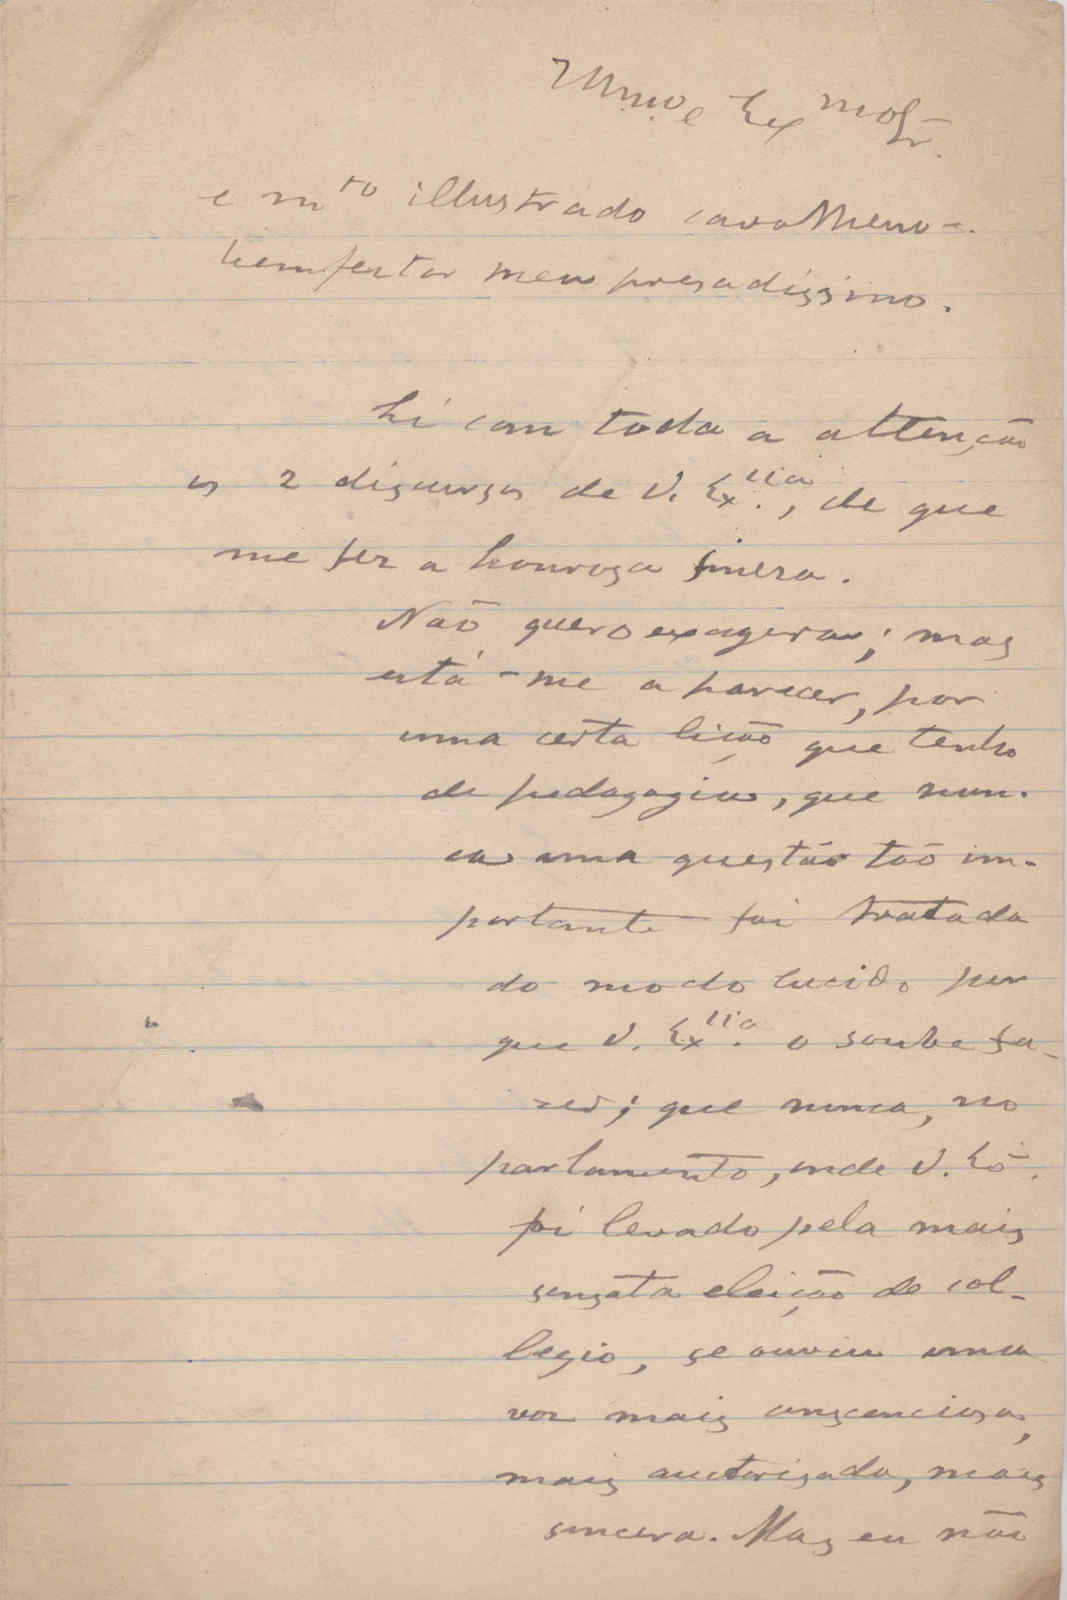 Illmo e Exmo Sr.
e mto illustrado cavalheiro e
bemfeitor meu presadissimo.
Li com toda a attenção
os 2 discursos de V. Excia., de que
me fez a honrosa fineza.
Não quero exagerar; mas
está-me a parecer, por
uma certa lição que tenho
de pedagogia, que nun-
ca uma questão tão im-
portante foi tratada
do modo lucido por
que V. Excia. o soube fa-
zer; que nunca, no
parlamento, onde V. Exa.
foi levado pela mais
sensata eleição de col-
legio, se ouviu uma
voz mais conscenciosa,
mais auctorisada, mais
sincera. Mas eu não